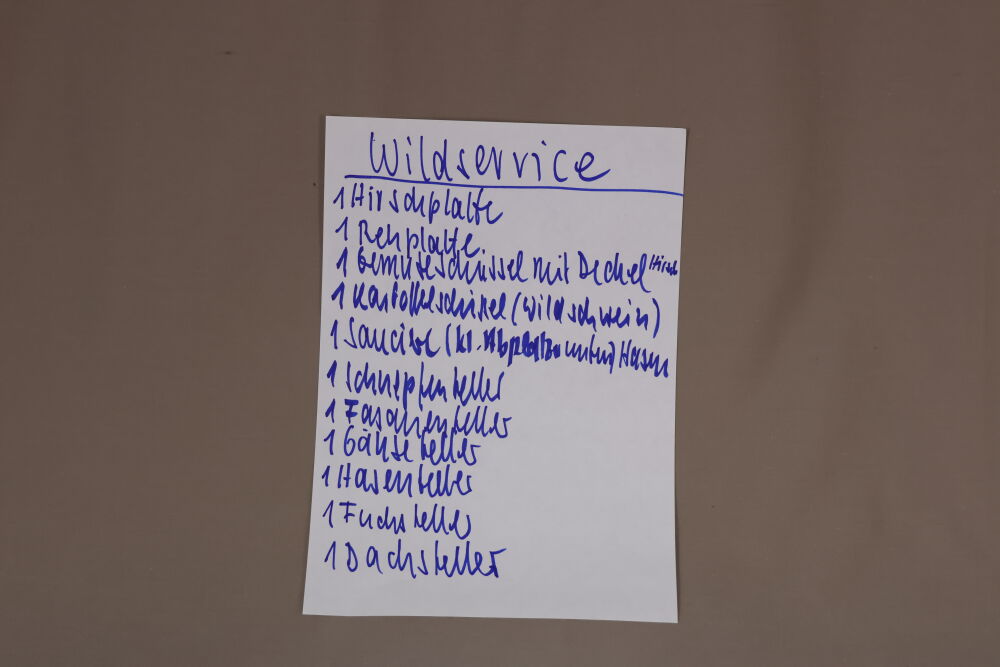 Wildservice
1 Hirschplatte
1 Rehplatte
1 Gemüseschüssel mit Deckel Hirsch
1 Kartoffelschüssel (Wildschwein)
1 Sauciere (kl. unten) Hasen
1 Schnepfenteller
1 Fasanenteller
1 Gänseteller
1 Hasenteller
1 Fuchsteller
1 Dachsteller